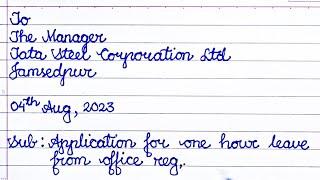 To
The Manager
Tata Steel Corporation Ltd
Jamsedpur
04th Aug, 2023
Sub: Application for one hour leave
from office reg,.